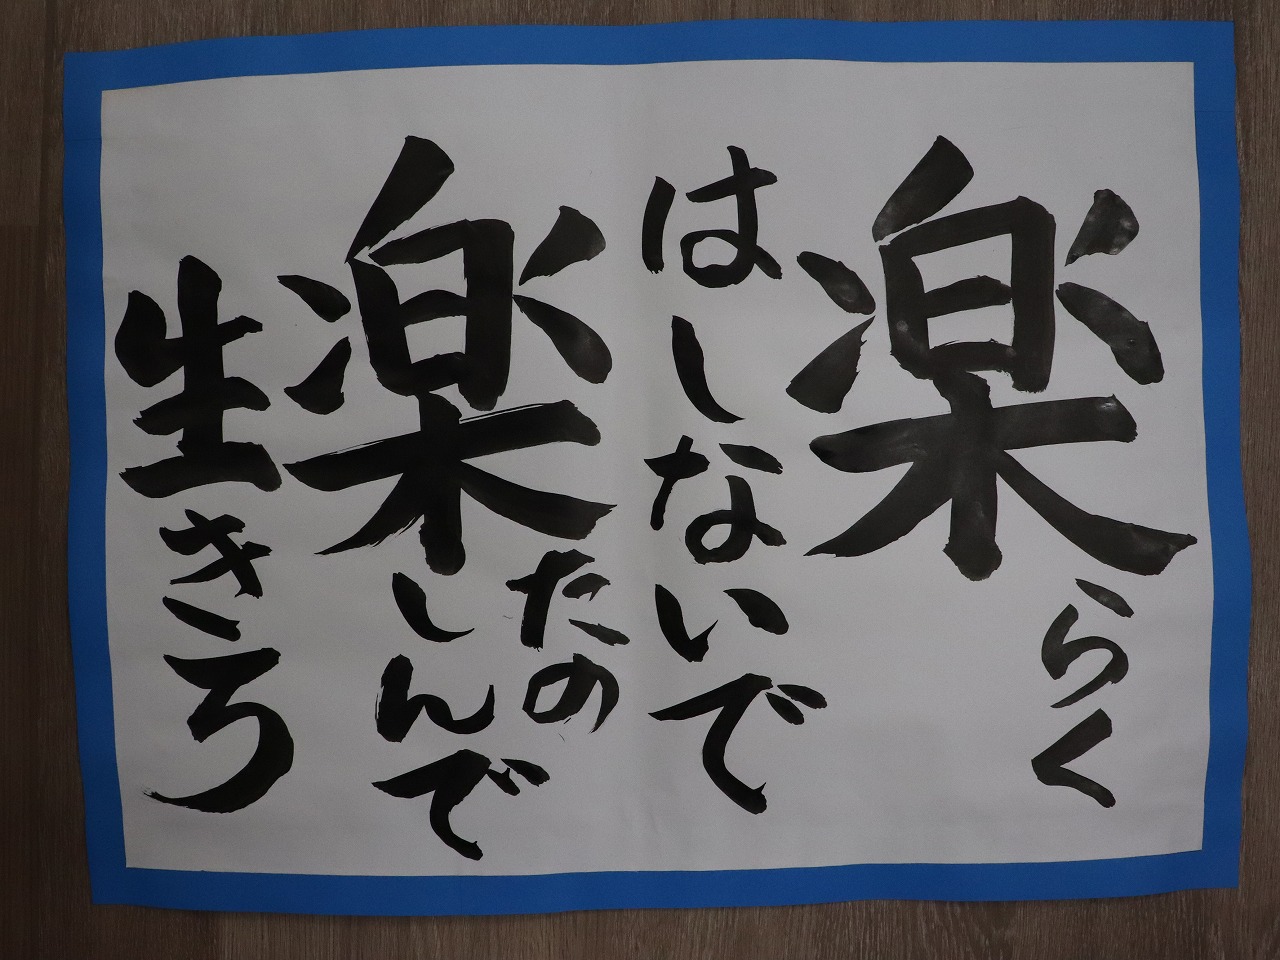 楽
らく
はしないで
楽しんで
たの
生きろ